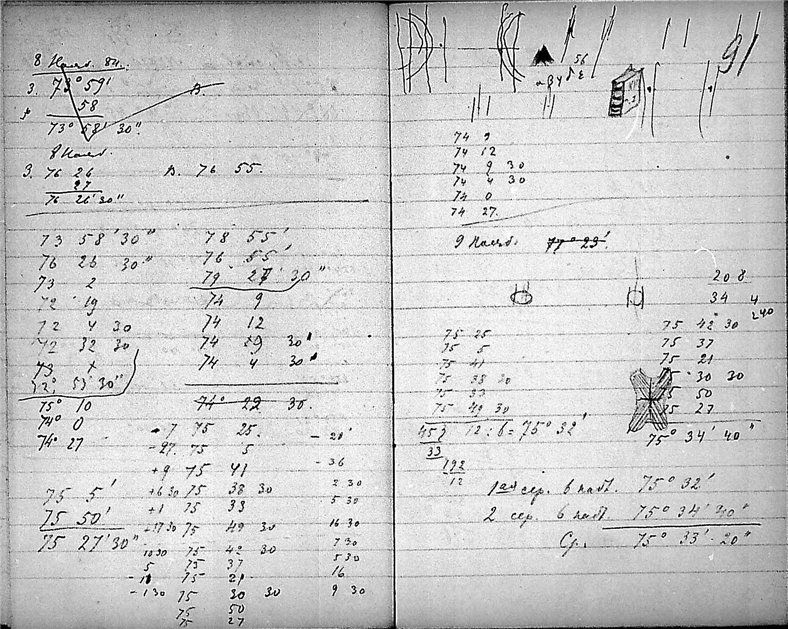 8 Наблд. 84.
З. 73° 59'
58
73° 58' 30"
8 Наблд.
З. 76 26
27
76 26' 30"
В. 76 55.
73 58' 30"
76 26 30"
73 2
72 19
72 4 30
72 32 30
75° 10
74° 0
74° 27
75 5'
75 50'
75 27' 30"
78 55'
76 55'
74 9
74 12
74 4 30
74° 22 30.
- 7 75 25.
- 27. 75 5
+ 9 75 41
+ 6 30 75 38 30
+ 1 75 33
75 49 30
10 30 75 42 30
5 75 37
75 21
- 1 30 75 30 30
75 50
75 27
- 20'
- 36
2 30
5 30
16 30
7 30
5 30
16
9 30
91
56
α β γ δ ε
74 9
74 12
74 9 30
74 4 30
74 0
74 27.
9 Наблд. 77° 23'
208
34 4
240
75 25
75 5
75 41
75 38 30
75 33
75 49 30
12 : 6 = 75° 32'
33
192
12
75 42 30
75 37
75 21
75 30 30
75 50
75 27
75° 34' 40"
1ая сер. 6 набл. 75° 32'
2 сер. 6 набл. 75° 34' 40"
Ср. 75° 33' - 20"